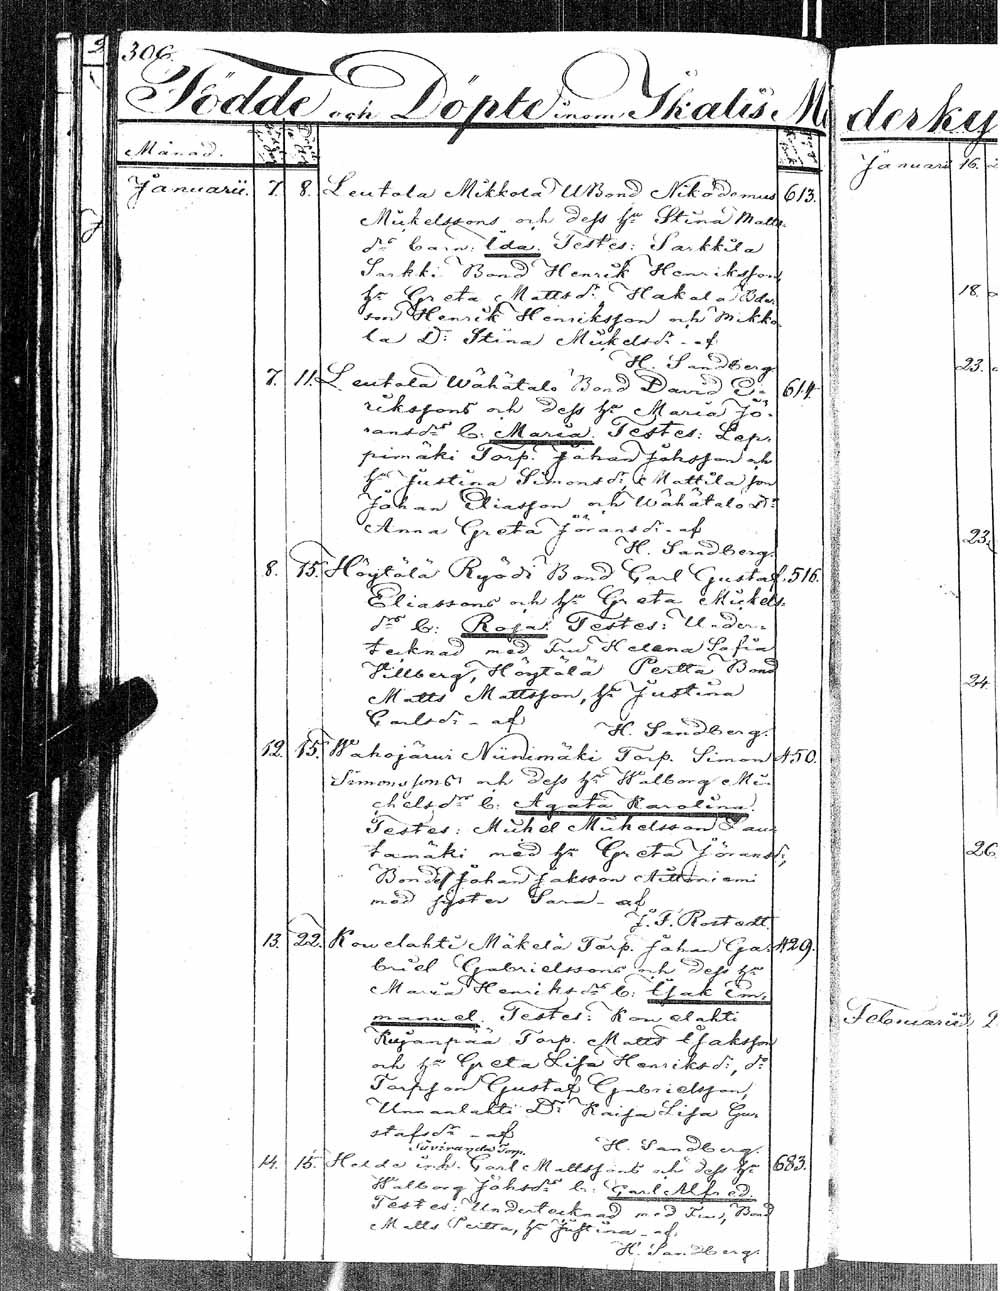 306.
Födde och Döpte inom Ikalis Mo
Månad.
Januarii. 7. 8. Leutola Mikkola UBond Nikodemus 613.
Mickelssons och dess hu Stina Matts-
dr barn: Ida. Testes: Sarkkila
Sarkki Bond Henrik Henriksson,
hu Greta Mattsdr, Hakala Bde-
son Henrik Henriksson och Mikko-
la Dr Stina Mickelsdr - af
H. Sandberg
7. 11. Leutola Wähätalo Bond David E- 614.
rikssons och dess hu Maria Jö-
ransdrs b: Maria. Testes: Lep-
pimäki Torp. Johan Johsson och
hu Justina Simonsdr, Mattila son
Johan Eliasson och Wähätalo Dr
Anna Greta Jöransdr - af
H. Sandberg.
8. 15. Höytölä Ryödi Bond Carl Gustaf 516.
Eliassons och hu Greta Mickels-
drs b: Rosa. Testes: Under-
tecknad med Fru Helena Sofia
Höytölä Pertta Bond
Matts Mattsson, hu Justina
Carlsdr - af
H. Sandberg.
12. 15. Wahojärwi Niinimäki Torp. Simon 450.
Simonssons och dess hu Walborg Mi-
chelsdrs b: Agata Karolina.
Testes: Michel Michelsson Lau-
tamäki med hu Greta Jöransdr,
Bonde Johan Jaksson Aittoniemi
med syster Sara - af
J. F. Rostedt.
13. 22. Kowelahti Mäkelä Torp. Johan Ga- 429.
briel Gabrielssons och dess hu
Maria Henriksdrs b: Isak Em-
manuel. Testes: Kowelahti
Kujanpää Torp. Matts Isaksson
och hu Greta Lisa Henriksdr, dr
Torpson Gustaf Gabrielsson,
Dr Kaisa Lisa Gu-
stafsdr - af
H. Sandberg.
14. 15. inh. Carl Mattssons och dess hu 683.
Walborg Johsdrs b: Carl Alfred.
Testes: Undertecknad med Fru, Bond
Matts Pertta, hu Justina - af
H. Sandberg.
derky
Januarii 16.
18.
23.
23.
24.
26
Februarii 2